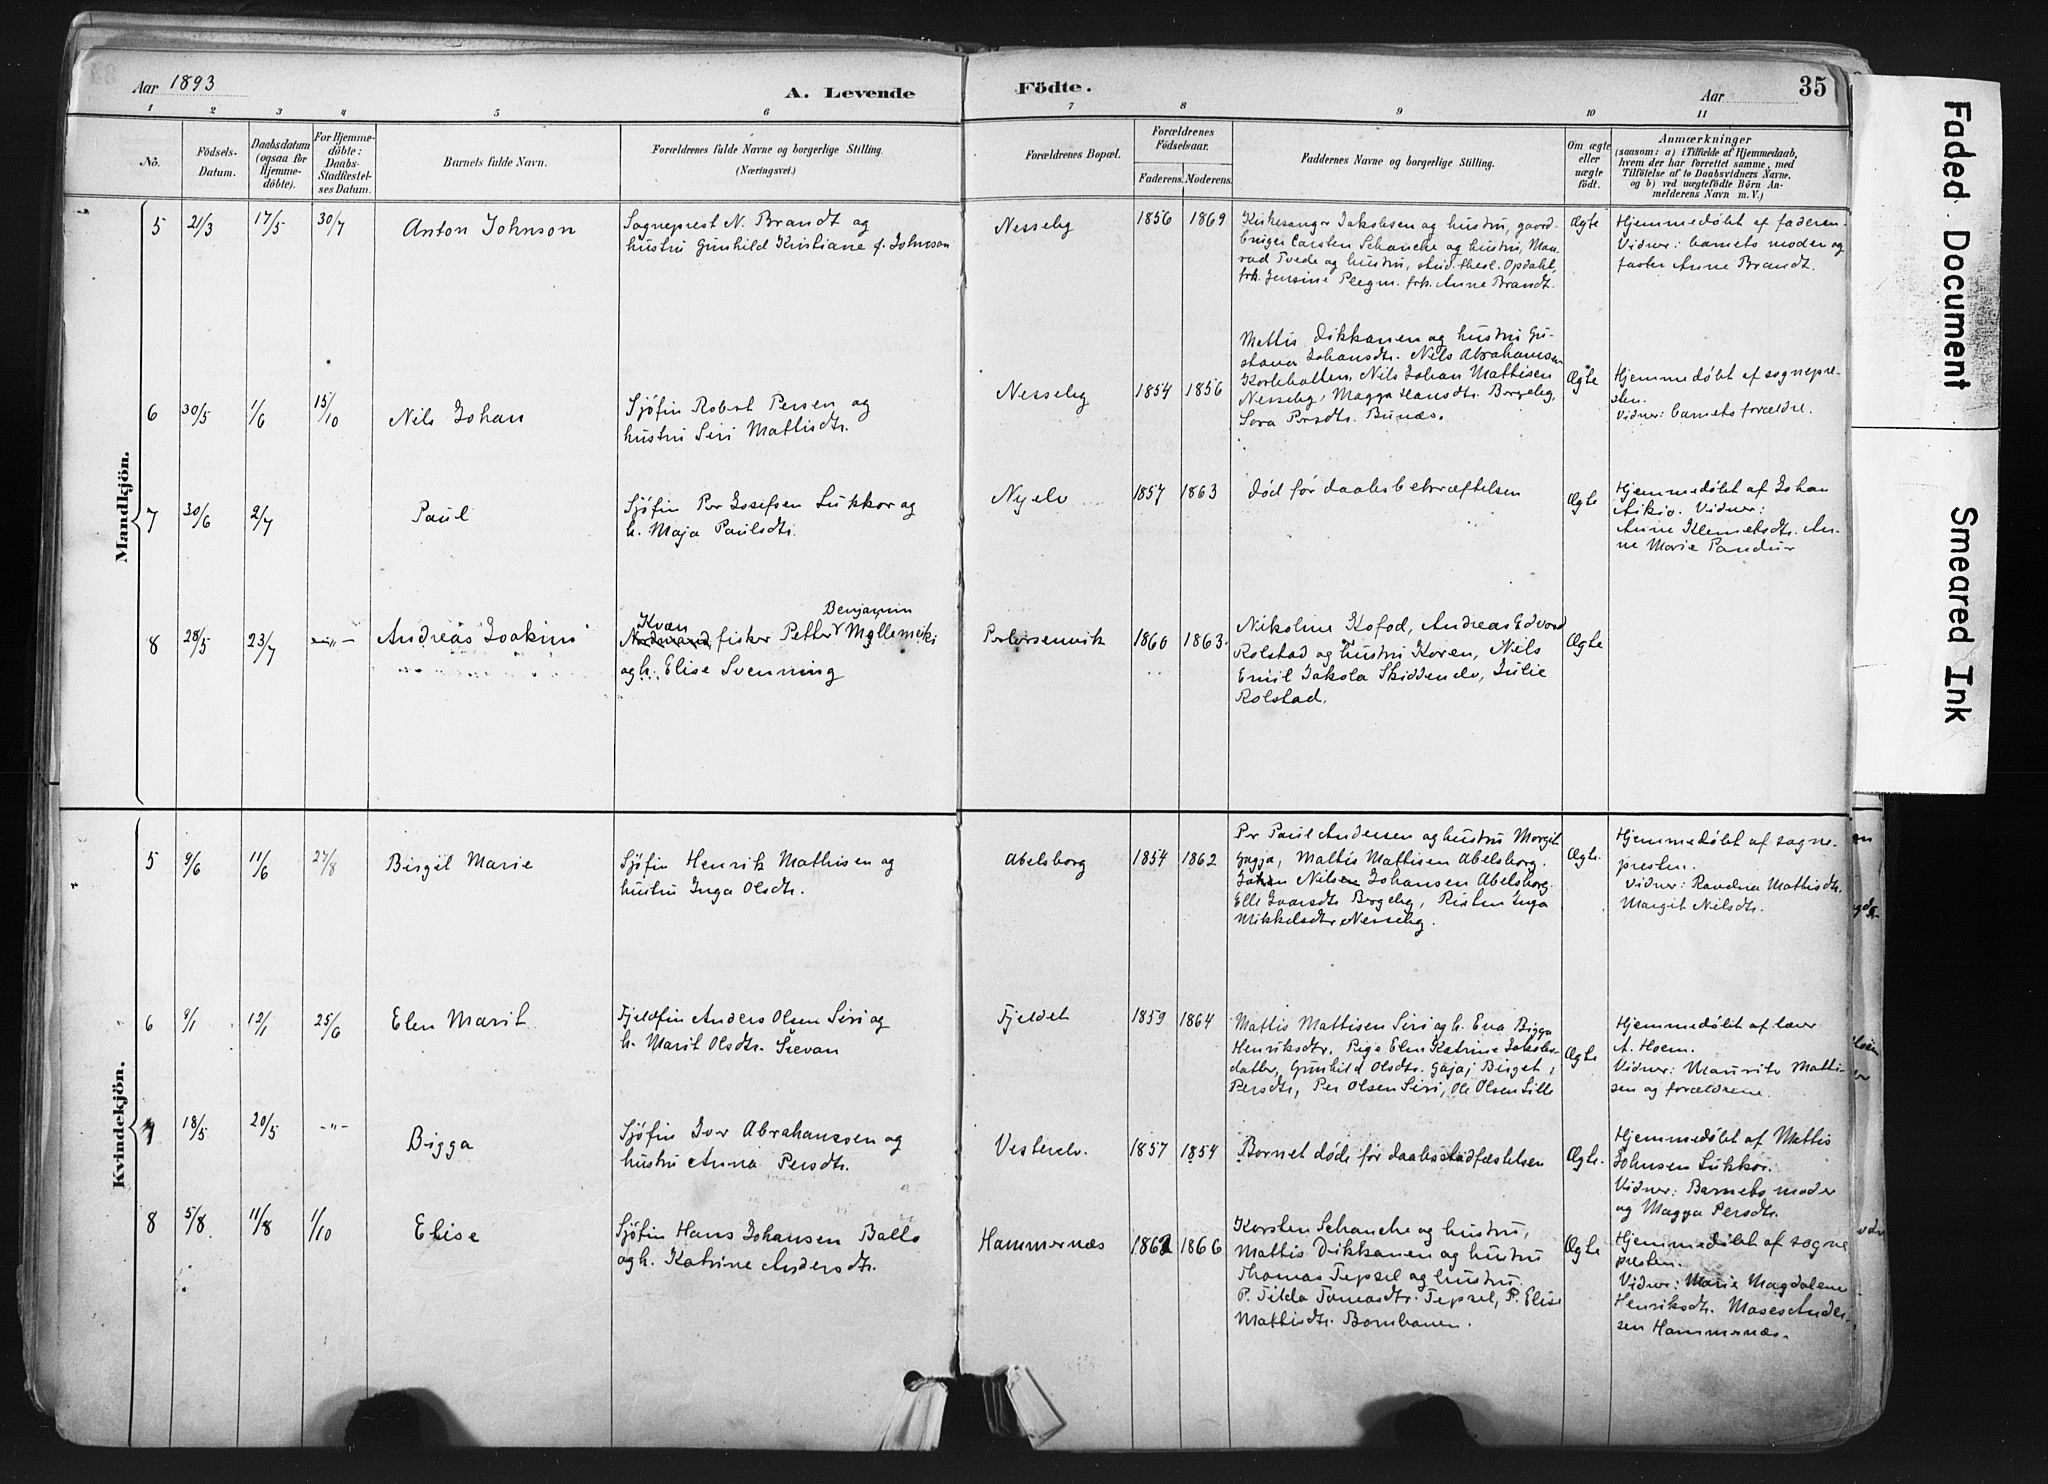 Aar 1893
A. Levende Födte.
Aar
35
1 2 3 4 5 6 7 8 9 10 11
No.
Födsels-
Datum.
Daabsdatum
(ogsaa for
Hjemme-
döbte).
For Hjemme-
döbte:
Daabs-
Stadfæstel-
ses Datum.
Barnets fulde Navn.
Forældrenes fulde Navne og borgerlige Stilling.
(Næringsvei.)
Forældrenes Bopæl.
Forældrenes
Födselsaar.
Faderens. Moderens.
Faddernes Navne og borgerlige Stilling.
Om ægte
eller
uægte
födt.
Anmærkninger
(saasom: a) i Tilfælde af Hjemmedaab,
hvem der har forrettet samme, med
Tilföielse af to Daabsvidners Navne,
og b) ved uægtefödte Börn An-
melderens Navn m. V.)
Mandkjön.
5 21/3 17/5 30/7 Anton Johnson
Sogneprest N. Brandt og
hustru Gunhild Kristiane f. Johnson
Nesseby 1856 1869
Kirkesanger Jakobsen og hustru, gaard-
bruger Carsten Schanche og hustru, Mau-
rad Tvede og hustru, stud. theol. Opdahl,
frk. Jensine Plegm. frk. Anne Brandt.
Ægte
Hjemmedøbt af faderen.
Vidner: barnets moder og
faster Anne Brandt.
6 30/5 1/6 15/10 Nils Johan
Sjøfin Robert Persen og
hustru Siri Mattisdtr.
Nesseby 1854 1856
Mattis Dikkanen og hustru Gu-
stava Johansdtr. Nils Abrahamsen
Nils Johan Mattisen
Nesseby, Magga Hansdtr. Bergeby,
Sara Persdtr. Bunæs.
Ægte
Hjemmedøbt af sognepre-
sten.
Vidner: barnets forældre.
7 30/6 2/7 Paul
Sjøfin Per Josefsen Lukkar og
h. Maja Paulsdtr.
Nyelv 1857 1863
død før daabsbekræftelsen
Ægte
Hjemmedøbt af Johan
Aikio. Vidner:
Anne Klemetsdtr. An-
ne Marie Pandur
8 28/5 23/7 -"- Andreas Joakim
Kvæn Benjamin
Nordmand, fisker Petter Møllenviki
og h. Elise Svenning
Petersenvik 1860 1863.
Nikoline Kofod, Andreas Edvard
Rolstad og hustru Karen, Nils
Emil Jakola Skiddenelv, Julie
Rolstad.
Ægte
Kvindekjön.
5 9/6 11/6 27/8 Birgit Marie
Sjøfin Henrik Mathisen og
hustru Inga Olsdtr.
Abelsborg 1854 1862
Per Paul Andersen og hustru Margit
Gagja, Mattis Mattisen Abelsborg.
Johan Nilsen Johansen Abelsborg.
Elli Ivarsdtr Bergeby, Risten Inga
Mikkelsdtr Nesseby.
Ægte.
Hjemmedøbt af sogne-
presten.
Vidner: Ravdna Mathisdtr.
Margit Nilsdtr.
6 9/1 12/1 25/6 Elen Marit
Fjeldfin Anders Olsen Siri og
h. Marit Olsdtr. Sievan
Fjeldet 1859 1864
Mattis Mattisen Siri og h. Eva Bigga
Henriksdtr, Pige Elen Katrine Jakobs-
datter, Gunhild Olsdtr. Gaja, Birget
Persdtr, Per Olsen Siri, Ole Olsen Lille
Ægte
Hjemmedøbt af lærer
A. Hoem.
Vidner: Maurits Matti-
sen og forældrene.
7 18/5 20/5 -"- Bigga
Sjøfin Iver Abrahamsen og
hustru Anna Persdtr.
Vesterelv. 1857 1854
Barnet døde før daabsstadfæstelsen
Ægte.
Hjemmedøbt af Mattis
Johnsen Lukkar.
Vidner: Barnets moder
og Magga Persdtr.
8 5/8 11/8 1/10 Elise
Sjøfin Hans Johansen Ballo
og h. Katrine Andersdtr.
Hammernæs 1862 1866
Karsten Schanche og hustru,
Mattis Dikkanen og hustru
Thomas Tepsel og hustru.
P. Tilda Tomasdtr. Tepsel, P. Elise
Mattisdtr. Bombanen.
Ægte
Hjemmedøbt af sogne
presten.
Vidner: Marie Magdalene
Henriksdtr. Moses Ander-
sen Hammernæs.
Faded Document
Smeared Ink